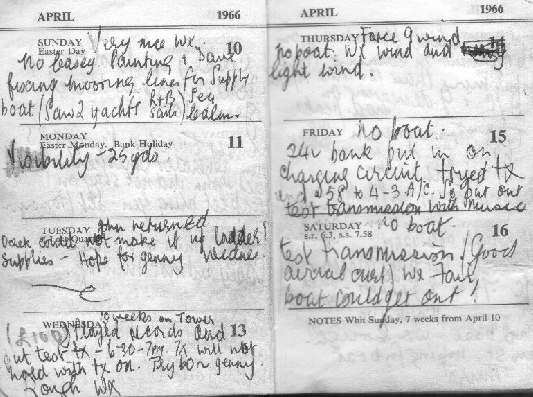 APRIL 1966
SUNDAY Very nice Wx. 10
Easter Day
No Casey Painting &
fixing mooring lines for supply
boat (Saw 2 yachts R+B sails) Sea Calm.
MONDAY 11
Easter Monday, Bank Holiday
Visibility - 25 yds
TUESDAY John returned
not make it up ladder
supplies - Hope for genny
WEDNESDAY 13
10 weeks on Tower
Played records and
put test tx - 6-30 - 7pm. Tx will not
hold with tx on. genny.
rough Wx
APRIL 1966
THURSDAY Force 9 wind 14
no boat. Wx wind and
light wind.
FRIDAY No boat. 15
24v bank put in on
charging circuit tryed tx
to 4-3 A/C. put out
test transmission with music
SATURDAY no boat. 16
s.r. 6.5, s.s. 7.58
test transmission (Good
aerial Wx Fair
boat could get out!
NOTES Whit Sunday, 7 weeks from April 10